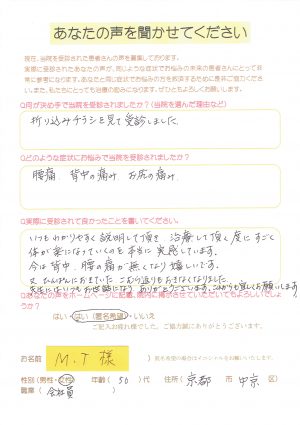 あなたの声を聞かせてください
現在、当院を受診された患者さんの声を募集しております。
実際に受診されたあなたの声が、同じような症状でお悩みの未来の患者さんにとって非
常に参考になります。あなたと同じ症状でお悩みの方を救済するために是非ご協力くだ
さい。また、私たちにとっても治療の励みになります。ぜひともよろしくお願いします。
Q何が決め手で当院を受診されましたか？(当院を選んだ理由など)
折り込みチラシを見て受診しました。
Qどのような症状にお悩みで当院を受診されましたか？
腰痛 背中の痛み お尻の痛み
Q実際に受診されて良かったことを書いてください。
いつもわかりやすく説明して頂き 治療して頂く度にすごく
体が楽になっていくのを本当に実感しています。
今は背中、腰の痛が無くなり嬉しいです。
又 ひんぱんにおきていた こむら返りもおきなくなりました。
先生にはいつもお世話になり ありがとうございます。これからも宜しくお願いします
Qあなたの声をホームページに記載、院内に掲示させていただいてもよろしいでしょ
うか？
はい・はい(匿名希望)・いいえ
ご記入お疲れ様でした。ご協力誠にありがとうございます。
お名前 M.T 様
匿名希望の場合はイニシャルをお願いいたします。
性別(男性・女性) 年齢(50)代 住所(京都 市 中京 区)
職業(会社員)